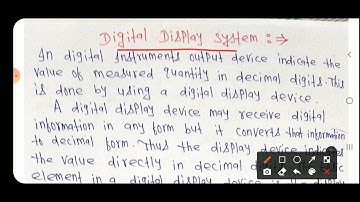 Digital Display System :⇒
In digital instruments output device indicate the
value of measured quantity in decimal digits. This
is done by using a digital display device.
A digital display device may receive digital
information in any form but it converts that information
to decimal form. Thus the display device indica
the value directly in decimal di
element in a digital display device is the display